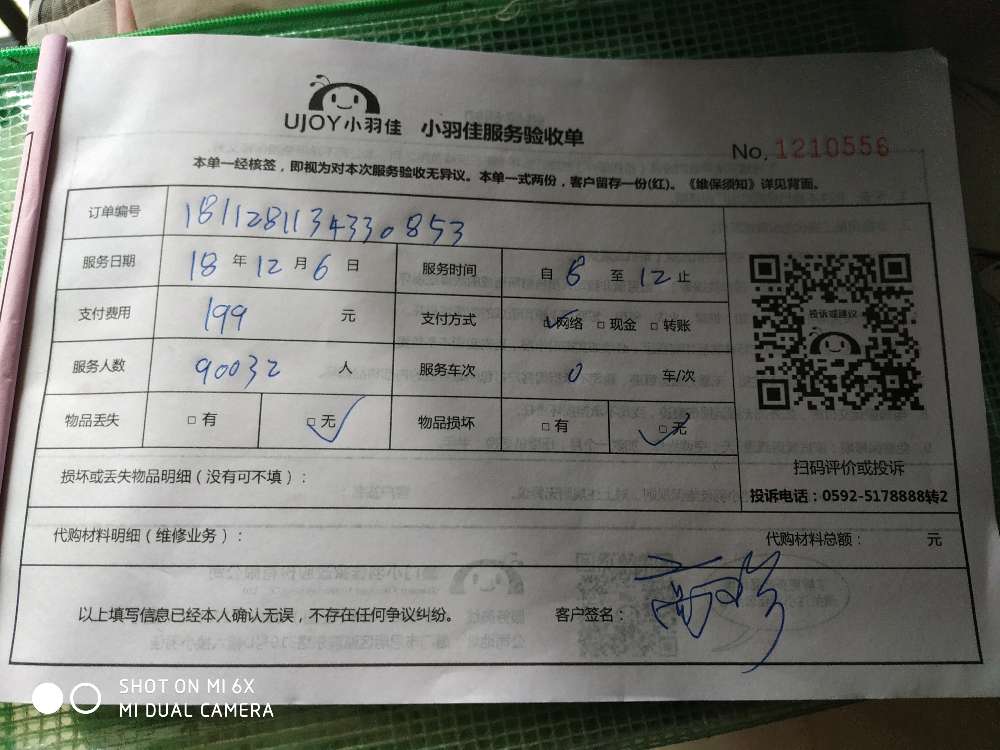 UJOY小羽佳 小羽佳服务验收单
No. 1210556
本单一经核签，即视为对本次服务验收无异议。本单一式两份，客户留存一份(红)。《维保须知》详见背面。
订单编号 1811281134330853
服务日期 18 年 12 月 6 日 服务时间 自 8 至 12 止
支付费用 199 元 支付方式 □网络 □现金 □转账
投诉或建议
服务人数 90032 人 服务车次 0 车/次
物品丢失 □有 □无 物品损坏 □有 □无
损坏或丢失物品明细（没有可不填）：
扫码评价或投诉
投诉电话：0592-5178888转2
代购材料明细（维修业务）： 代购材料总额： 元
以上填写信息已经本人确认无误，不存在任何争议纠纷。 客户签名：
SHOT ON MI 6X
MI DUAL CAMERA